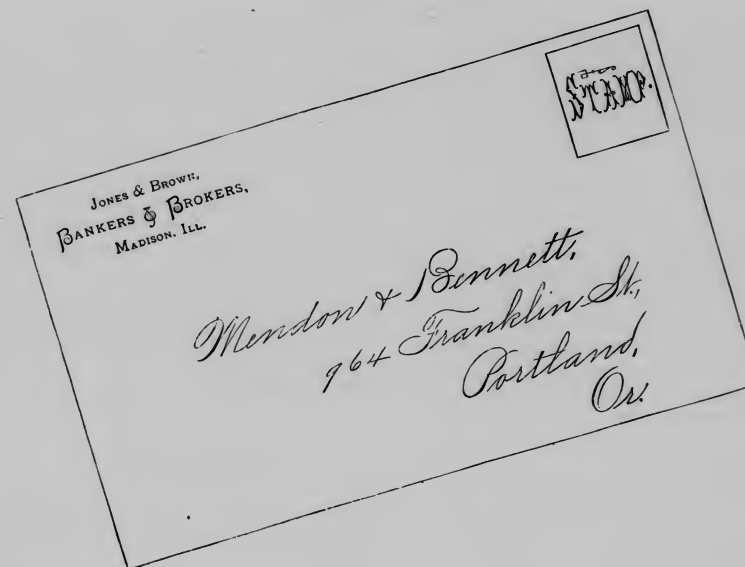 JONES & BROWN,
BANKERS & BROKERS,
MADISON, ILL.
STAMP.
Mendon & Bennett,
964 Franklin St.,
Portland,
Or.